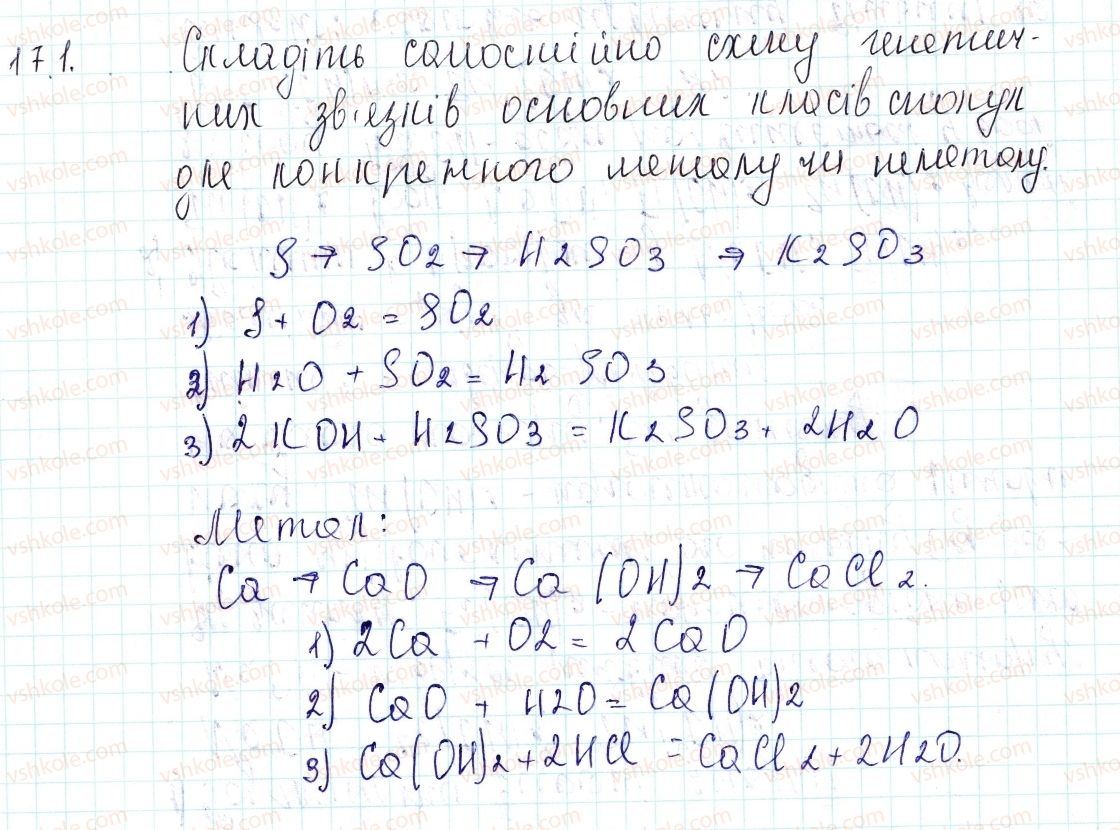 171. Складіть самостійно схему генетич-
них зв'язків основних класів сполук
для конкретного металу чи неметалу.
S → SO2 → H2SO3 → K2SO3
1) S + O2 = SO2
2) H2O + SO2 = H2SO3
3) 2KOH + H2SO3 = K2SO3 + 2H2O
Метал:
Ca → CaO → Ca(OH)2 → CaCl2.
1) 2Ca + O2 = 2CaO
2) CaO + H2O = Ca(OH)2
3) Ca(OH)2 + 2HCl = CaCl2 + 2H2O.